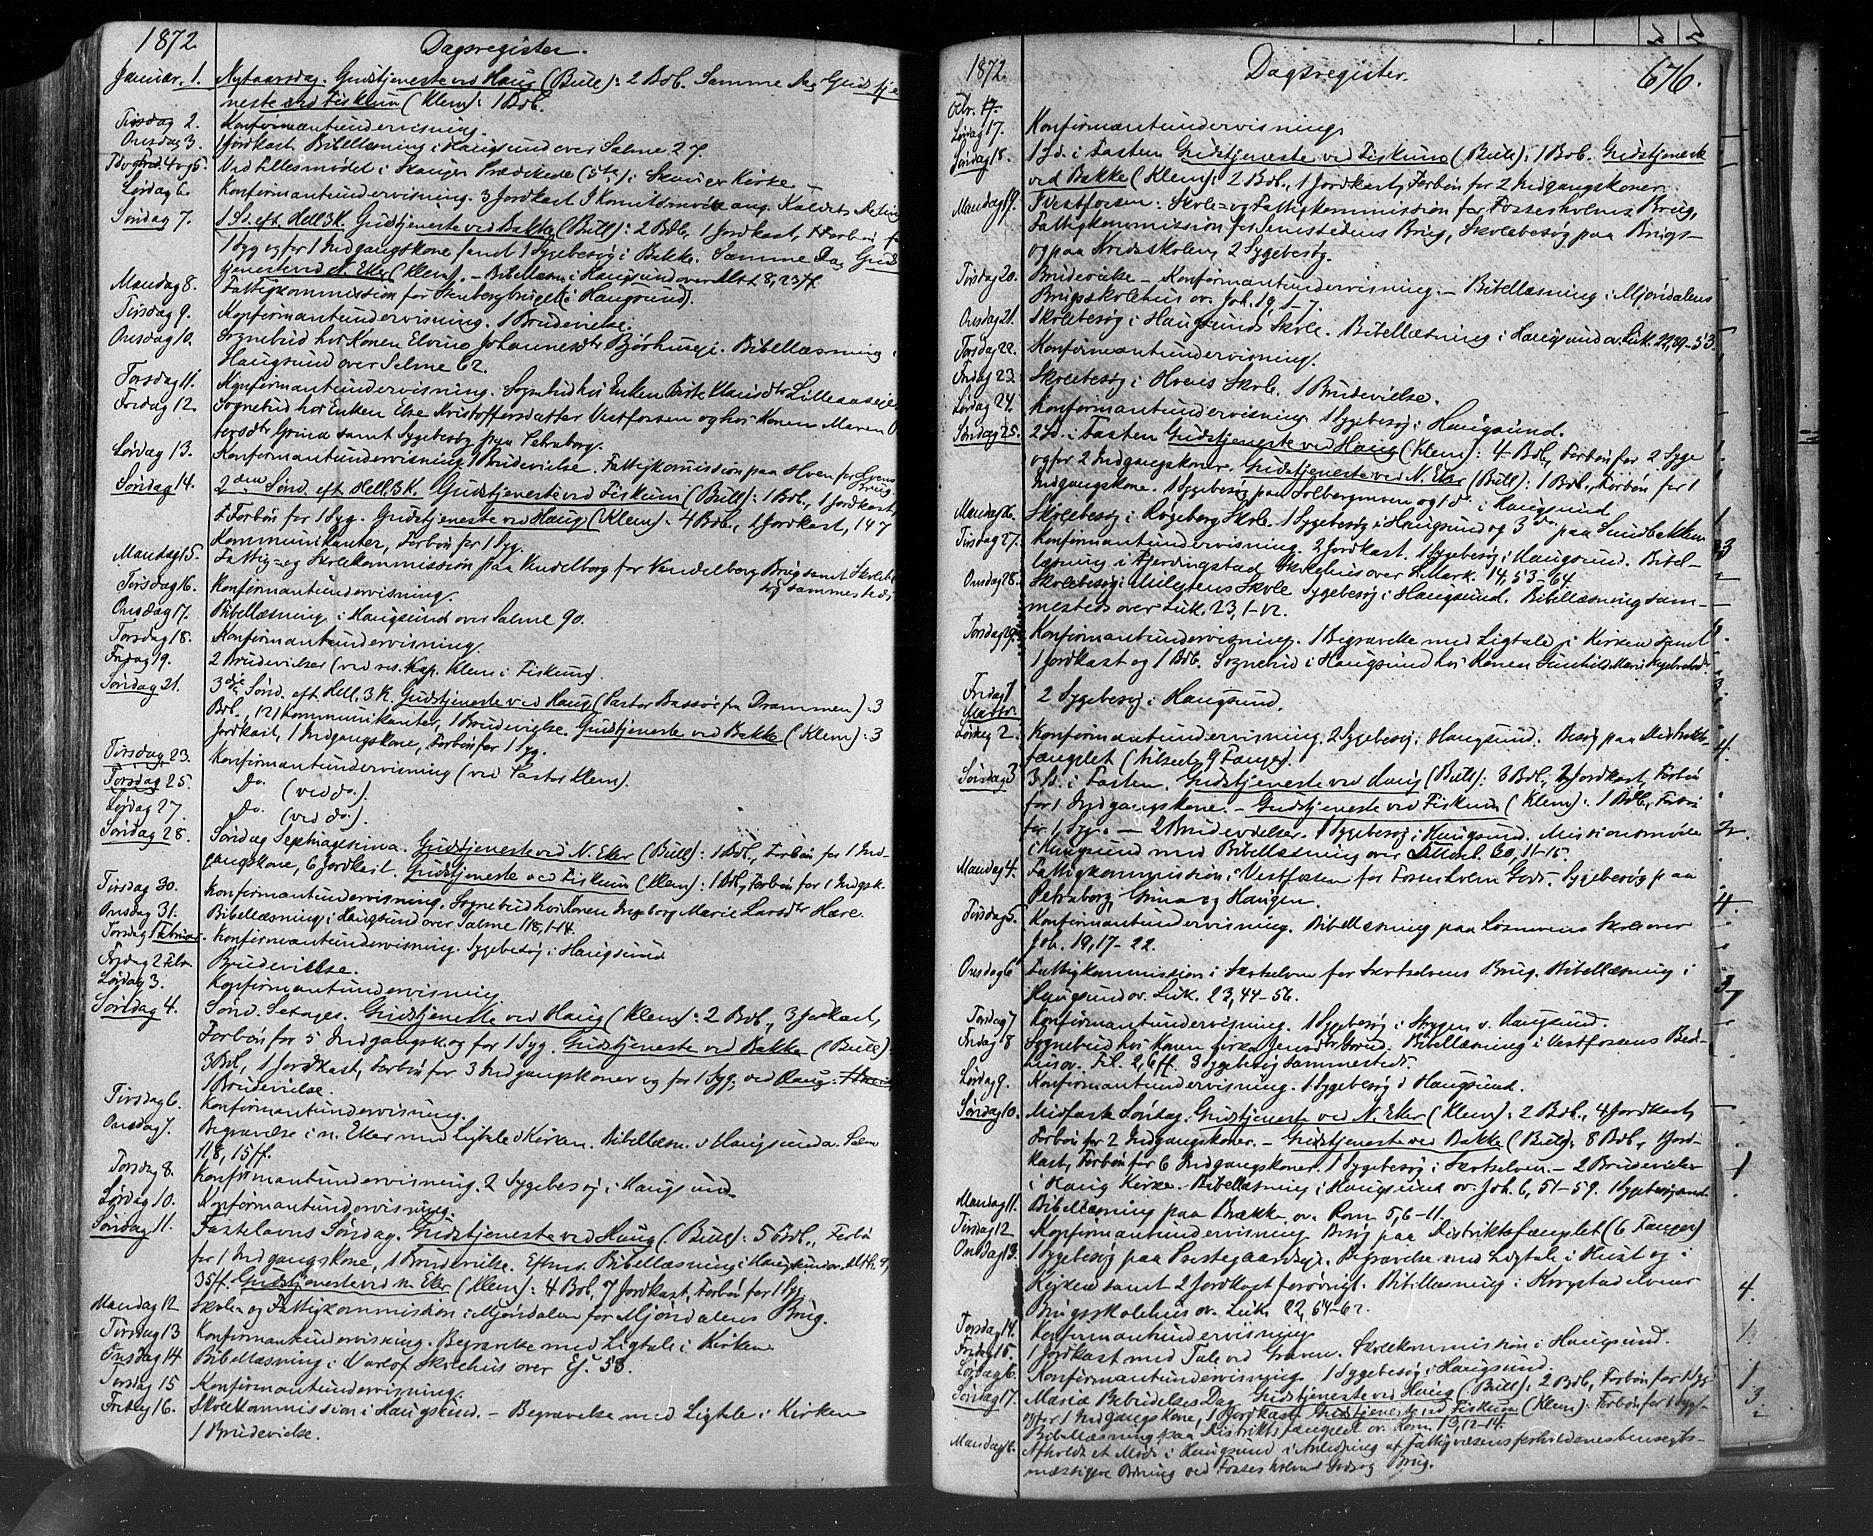 1872. Dagsregister.
Januar. 1. Nytaarsdag. Gudstjeneste ved Haug (Bull): 2 Bdb. Samme Dag Gudstje-
neste ved Fiskum (Klem): 1 Bdb.
Tirsdag 2. Konfirmantundervisning.
Onsdag 3. 1 Jordkast. Bibellæsning i Haugsund over Salme 27.
4 og 5. Ved Fællesmødet i Skauger Prædikede (5te) i Skauger Kirke
Lørdag 6. Konfirmantundervisning. 3 Jordkast. I Komitemøde ang. Kaldets
Søndag 7. 1 Sd. eft. Hell. 3 K. Gudstjeneste ved Bakke (Bull): 2 Bdb. 1 Jordkast, Forbøn for
1 Syg og for 1 Indgangskone samt 1 Sygebesøg i Bakke. Samme Dag Guds-
tjeneste ved N. Eker (Klem). – Bibellæsn. i Haugsund over Mt 8, 23 ff
Mandag 8. Fattigkommission for Stenbergbruget (i Haugsund).
Tirsdag 9. Konfirmantundervisning. 1 Brudevielse.
Onsdag 10. Sognebud hos Konen Johannesdtr Bjørhuseje. Bibellæsning i
Haugsund over Salme 62.
Torsdag 11. Konfirmantundervisning. Sognebud hos Enken Birte Lilleaaseje
Fredag 12. Sognebud hos Enken Else Kristoffersdatter Vestfossen og hos Konen Maren
Grina samt Sygebesøg paa Petraborg.
Lørdag 13. Konfirmantundervisning. 1 Brudevielse. Fattigkommission paa Hoen for Hoens
Brug.
Søndag 14. 2den Sønd. eft. Hell. 3 K. Gudstjeneste ved Fiskum (Bull): 1 Bdb, 1 Jordkast,
Forbøn for 1 Syg. Gudstjeneste ved Haug (Klem): 4 Bdb., 1 Jordkast, 147
Kommunikanter, Forbøn for 1 Syg.
Mandag 15. Fattig- og Skolekommission paa Vendelborg for Vendelborg Brug samt Skolebe-
søg sammesteds.
Tirsdag 16. Konfirmantundervisning.
Onsdag 17. Bibellæsning i Haugsund over Salme 90.
Torsdag 18. Konfirmantundervisning.
Fredag 19. 2 Brudevielser (ved res. Kap. Klem i Fiskum).
Søndag 21. 3die Sønd. eft. Hell. 3 K. Gudstjeneste ved Haug (Pastor Bassøe fra Drammen) 3
Bdb., 121 Kommunikanter, 1 Brudevielse. Gudstjeneste ved Bakke (Klem): 3
Jordkast, 1 Indgangskone, Forbøn for 1 Syg.
Tirsdag 23. Konfirmantundervisning (ved Pastor Klem).
Torsdag 25. Do. (ved do.).
Lørdag 27. Do. (ved do.).
Søndag 28. Søndag Septuagesima. Gudstjeneste ved N. Eker (Bull): 1 Bdb., Forbøn for 1 Ind-
gangskone, 6 Jordkast. Gudstjeneste ved Fiskum (Klem): 1 Bdb, Forbøn for 1 Indgsk.
Tirsdag 30. Konfirmantundervisning. Sognebud hos Konen Ingeborg Marie Larsdtr Hære.
Onsdag 31. Bibellæsning i Haugsund over Salme 118, 1-14.
Torsdag 1 Februar. Konfirmantundervisning. Sygebesøg i Haugsund
Fredag 2 Febr. Brudevielse.
Lørdag 3. Konfirmantundervisning.
Søndag 4. Sønd. Sexages. Gudstjeneste ved Haug (Klem): 2 Bdb., 3 Jordkast,
Forbøn for 5 Indgangsk. og for 1 Syg. Gudstjeneste ved Bakke (Bull)
3 Bdb, 1 Jordkast, Forbøn for 3 Indgangskoner og for 1 Syg, ved Haug
1 Brudevielse.
Tirsdag 6. Konfirmantundervisning.
Onsdag 7. Begravelse i N. Eker med Ligtale i Kirken. Bibellæsn. i Haugsund o. Salm
118, 15 ff.
Torsdag 8. Konfirmantundervisning. 2 Sygebesøg i Haugsund
Lørdag 10. Konfirmantundervisning.
Søndag 11. Fastelavns Søndag. Gudstjeneste ved Haug (Bull): 5 Bdb., Forbø
for 1 Indgangskone, 1 Brudevielse. Efterm. Bibellæsning i Haugsund ov. Mtth. 9,
35 ff. Gudstjeneste ved N. Eker (Klem): 4 Bdb, 7 Jordkast, Forbøn for 1 Syg
Mandag 12 Skole- og Fattigkommission i Mjøndalen for Mjøndalens Brug.
Tirsdag 13 Konfirmantundervisning. Begravelse med Ligtale i Kirken
Onsdag 14 Bibellæsning i Varlof Skolehus over Ej. 53.
Torsdag 15 Konfirmantundervisning.
Fredag 16. Skolekommission i Haugsund. – Begravelse med Ligtale i Kirken
1 Brudevielse.
1872. Dagsregister. 676.
Febr. 17.
Lørdag 17. Konfirmantundervisning
Søndag 18. 1 Sd. i Fasten Gudstjeneste ved Fiskum (Bull): 1 Bdb. Gudstjeneste
ved Bakke (Klem): 2 Bdb., 1 Jordkast, Forbøn for 2 Indgangskoner.
Mandag 19. I Vestfossen: Skole- og Fattigkommission for Fossesholms Brug,
Fattigkommission for Brug, Skolebesøg paa Brugs-
og paa Kredsskolen, 2 Sygebesøg.
Tirsdag 20. Brudevielse – Konfirmantundervisning. – Bibellæsning i Mjøndalens
Brugsskolehus ov. Joh. 19, 1–7.
Onsdag 21. Skolebesøg i Haugsunds Skole. Bibellæsning i Haugsund ov. Luk. 22, 39–53.
Torsdag 22. Konfirmantundervisning.
Fredag 23. Skolebesøg i Hoens Skole. 1 Brudevielse.
Lørdag 24. Konfirmantundervisning. 1 Sygebesøg i Haugsund.
Søndag 25. 2 Sd. i Fasten Gudstjeneste ved Haug (Klem): 4 Bdb., Forbøn for 2 Syge
og for 2 Indgangskoner. Gudstjeneste ved N. Eker (Bull): 1 Bdb., Forbøn for 1
Indgangskone. 1 Sygebesøg paa Solbergmoen og 1 do i Haugsund
Mandag 26. Skolebesøg i Skole. 1 Sygebesøg i Haugsund og 3 do paa Smedbakken
Tirsdag 27. Konfirmantundervisning. 2 Jordkast. 1 Sygebesøg i Haugsund. Bibel-
læsning i Skolehus over Mark. 14, 53–64.
Onsdag 28. Skolebesøg i Skole Sygebesøg i Haugsund. Bibellæsning sam-
mesteds over Luk. 23, 1–12.
Torsdag 29. Konfirmantundervisning. 1 Begravelse med Ligtale i Kirken samt
1 Jordkast og 1 Bdb. Sognebud i Haugsund hos Konen
Fredag 1 Marts. 2 Sygebesøg i Haugsund.
Lørdag 2. Konfirmantundervisning. 2 Sygebesøg i Haugsund. Besøg paa Distrikts-
fængslet (tilsted 9 Fanger).
Søndag 3 3 Sd. i Fasten. Gudstjeneste ved Haug (Bull): 3 Bdb., 2 Jordkast, Forbøn
for 1 Indgangskone. – Gudstjeneste ved Fiskum (Klem): 1 Bdb., Forbøn
for 1 Syg. – 2 Brudevielser. 1 Sygebesøg i Haugsund. Missionsmøde
i Haugsund med Bibellæsning over 5 Moseb. 30, 11–15.
Mandag 4. Fattigkommission i Vestfossen for Fossesholm Gods. Sygebesøg paa
Petraborg, Grina og Haugen.
Tirsdag 5. Konfirmantundervisning. Bibellæsning paa Skole over
Joh. 19, 17–22.
Onsdag 6 Fattigkommission i Skotselven for Skotselvens Brug. Bibellæsning i
Haugsund ov. Luk. 23, 44–56.
Torsdag 7 Konfirmantundervisning. 1 Sygebesøg i Skogen v. Haugsund.
Fredag 8 Sognebud hos Konen Bibellæsning i Vestfossens Bede-
hus ov. Fil. 2, 6 ff. 3 Sygebesøg sammesteds.
Lørdag 9. Konfirmantundervisning. 1 Sygebesøg i Haugsund.
Søndag 10. Midfaste Søndag. Gudstjeneste ved N. Eker (Klem): 2 Bdb., 4 Jordkast,
Forbøn for 2 Indgangskoner. – Gudstjeneste ved Bakke (Bull): 8 Bdb., 1 Jord-
kast, Forbøn for 6 Indgangskoner. 1 Sygebesøg i Skotselven. – 2 Brudevielser
i Haug Kirke. Bibellæsning i Haugsund ov. Joh. 6, 51–59. 1 Sygebesøg
Mandag 11. Bibellæsning paa Brække ov. Rom 5, 6–11.
Tirsdag 12 Konfirmantundervisning Besøg paa Distriktsfængslet (6 Fanger)
Onsdag 13. 1 Sygebesøg paa Prestegaardseje. Begravelse med Ligtale i Huset og i
Kirken samt 2 Jordkast forøvrigt. Bibellæsning i Krogstadelvens
Brugsskolehus ov. Luk. 22, 54–62.
Torsdag 14. Konfirmantundervisning
Fredag 15 1 Jordkast med Tale ved Graven. Skolekommission i Haugsund.
Lørdag 16. Konfirmantundervisning. 1 Sygebesøg i Haugsund.
Søndag 17. Mariæ Bebudelses Dag. Gudstjeneste ved Haug (Bull): 2 Bdb., Forbøn for 1 Syg
og for 1 Indgangskone, 1 Jordkast. Gudstjeneste ved Fiskum (Klem): Forbøn for 1 Syg.
Bibellæsning paa Distriktsfængslet ov. Rom. 13, 12–14.
Mandag 18. Afholdt et Møde i Haugsund i Anledning af Fattigvæsens forholdenes hensigts-
mæssigere Ordning ved Fossesholms Gods og Brug.